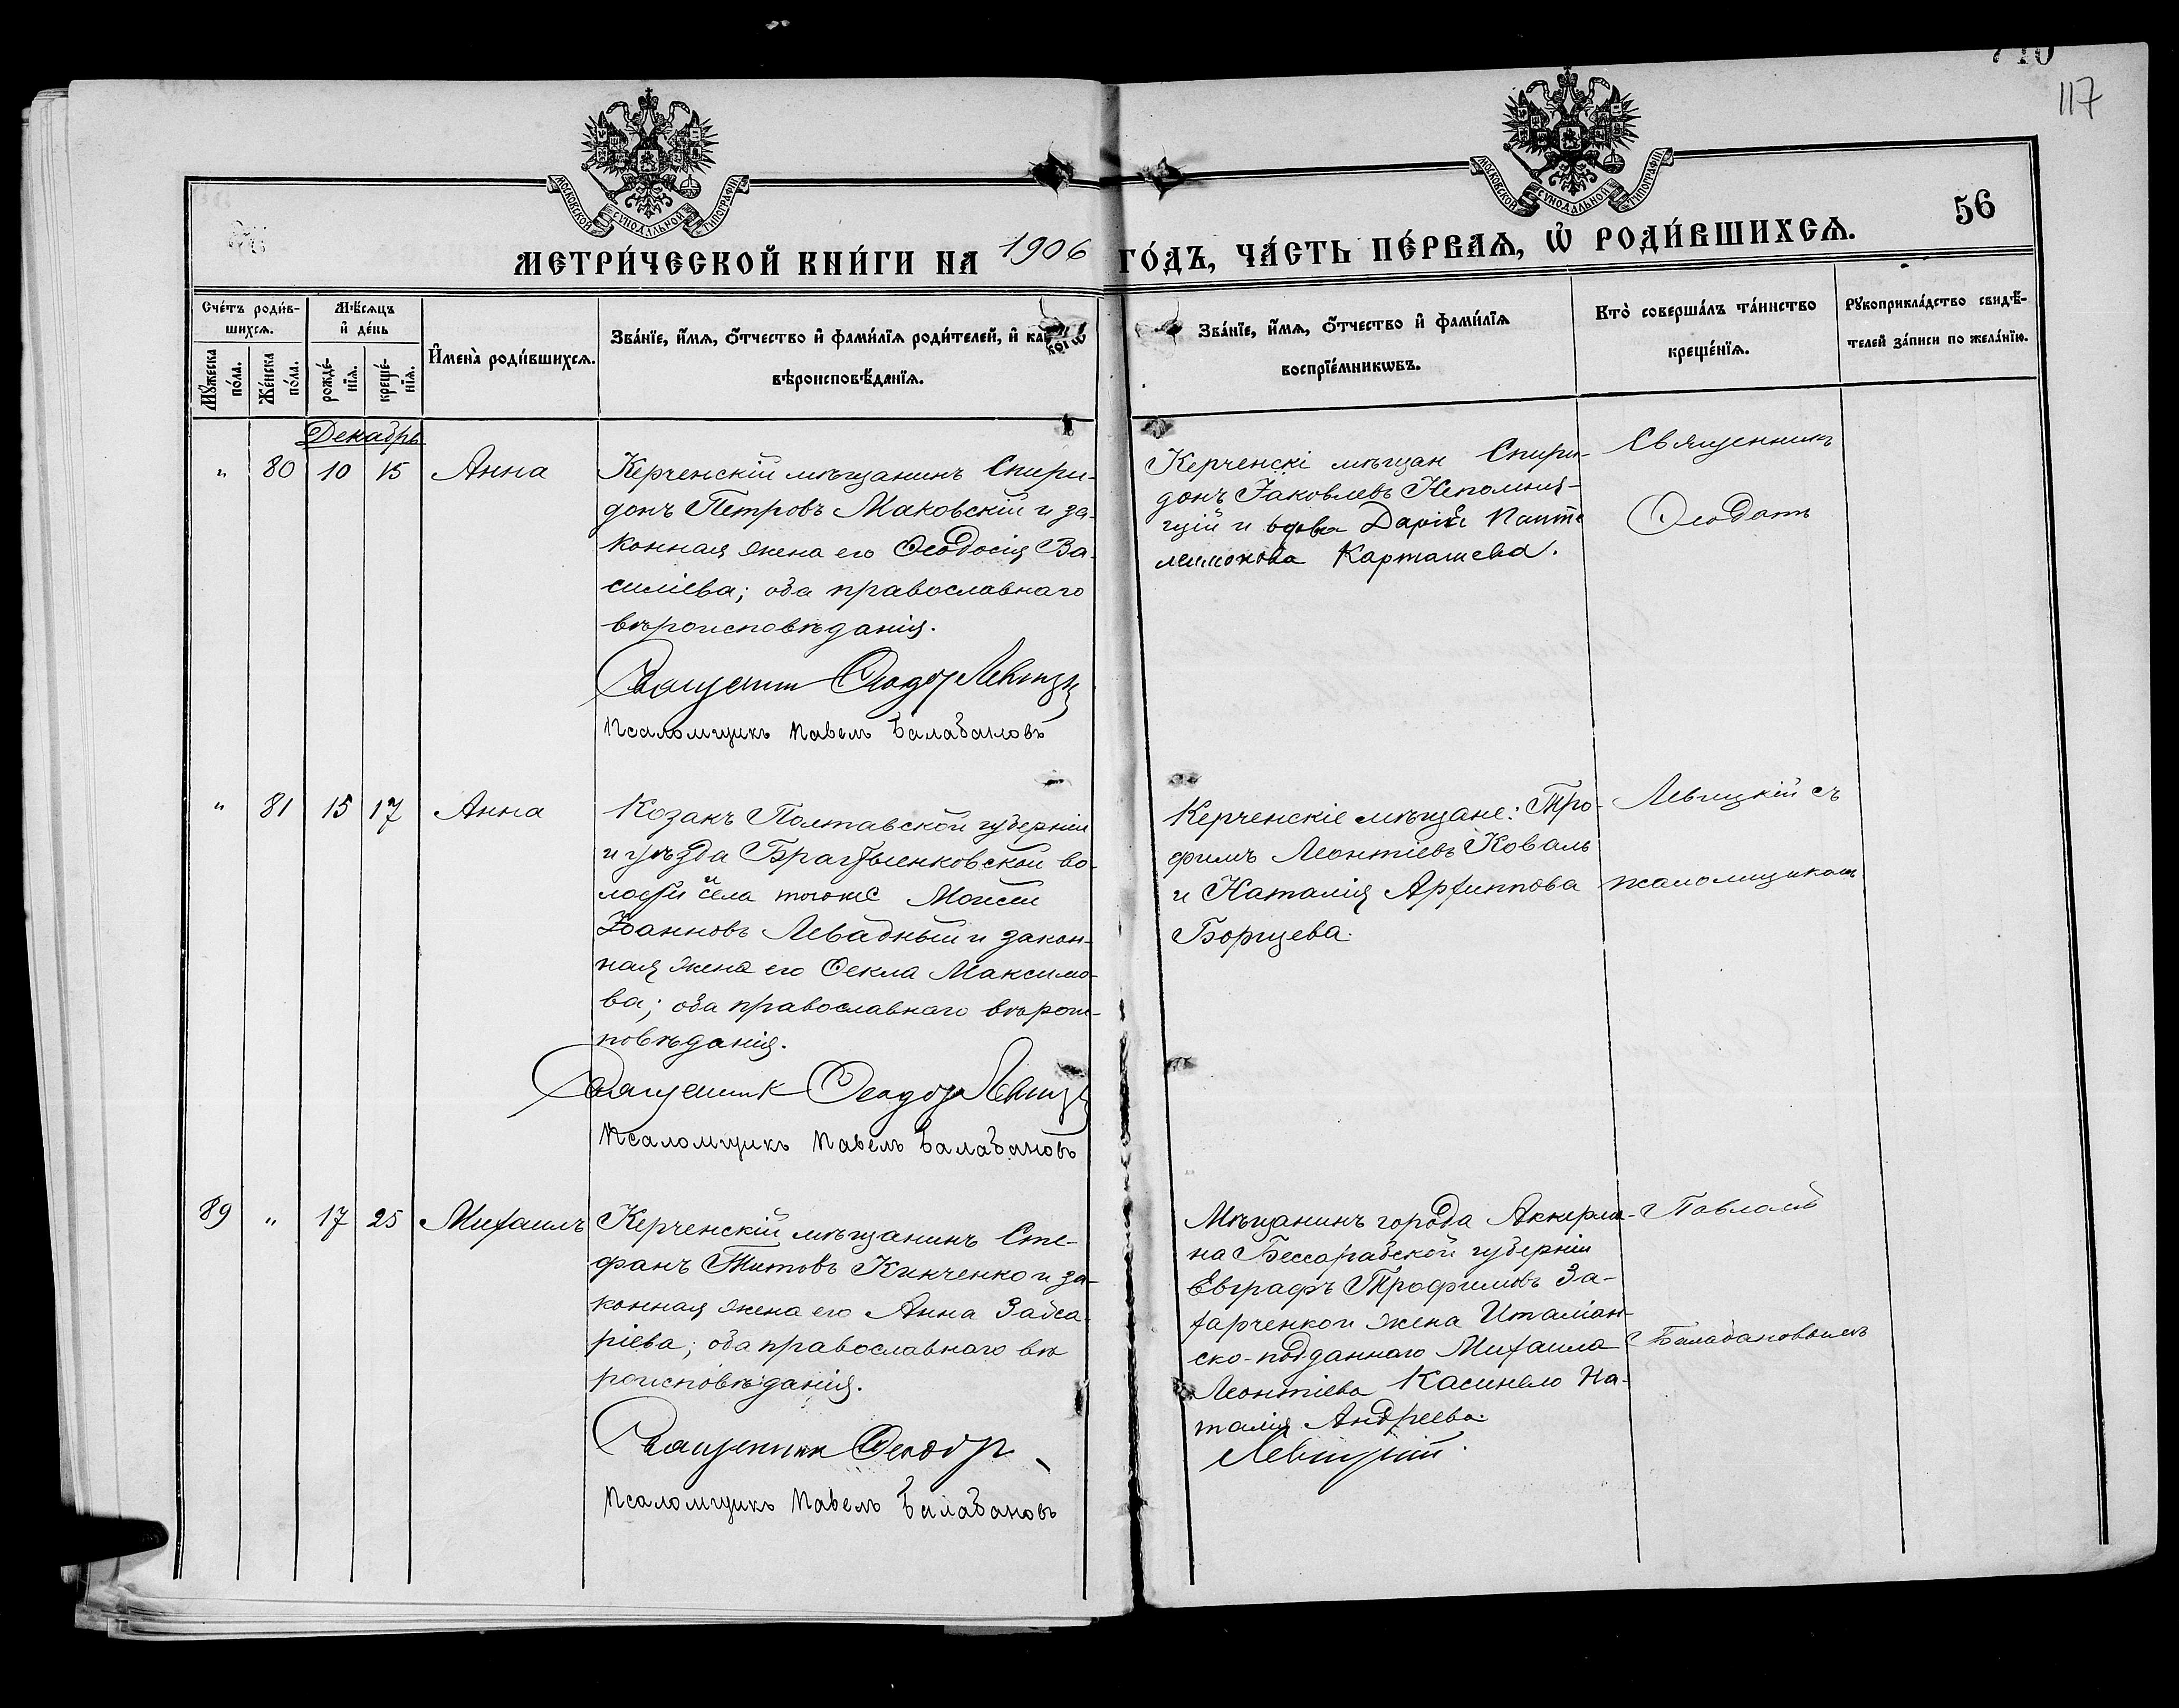 117
МОСКОВСКОЙ СѴНОДАЛЬНОЙ ТИПОГРАФІИ
МОСКОВСКОЙ СѴНОДАЛЬНОЙ ТИПОГРАФІИ
56
МЕТРИ́ЧЕСКОЙ КНИ́ГИ НА 1906 ГО́ДЪ, ЧА́СТЬ ПЕ́РВАѦ, Ѡ҆ РОДИ́ВШИХСѦ.
Сче́тъ роди́в-
шихсѧ.
Мꙋ́жеска по́ла.
Же́нска по́ла.
Мѣ́сѧцъ
и҆ де́нь
рожде́-
нїѧ.
креще́-
нїѧ.
И҆мена̀ роди́вшихсѧ.
Зва́нїе, и҆́мѧ, ѻ҆́тчество и҆ фами́лїѧ роди́телей, и҆ как
вѣроисповѣ́данїѧ.
Зва́нїе, и҆́мѧ, ѻ҆́тчество и҆ фами́лїѧ
воспрїе́мникѡвъ.
Кто̀ соверша́лъ та́инство
креще́нїѧ.
Рꙋкоприкла́дство свидѣ́-
телей за́писи по жела́нїю.
Декабрь
" 80 10 15 Анна
Керченскій мѣщанинъ Спири-
донъ Петровъ Маковскій и за-
конная жена его Ѳеодосія Ва-
силіева; оба православнаго
вѣроисповѣданія.
Священник Ѳеодор Левицкій
Псаломщикъ Павелъ Балабановъ
Керченскі мѣщан Спири-
донъ Іаковлевъ Непомня-
щій и вдова Дарія Панте
леимонова Карташева.
Священникъ
" 81 15 17 Анна
Козакъ Полтавской губерніи
и уѣзда во-
лости и села тогоже Моисей
Іоанновъ Левадный и закон-
ная жена его Ѳекла Максимо-
ва; оба православнаго вѣроис-
повѣданія.
Священник Ѳеодор Левицкій
Псаломщикъ Павелъ Балабановъ
Керченскіе мѣщане: Тро-
фимъ Леонтіевъ Коваль
и Наталія Архиппова
Борщева.
Левицкій съ
псаломщикомъ
89 " 17 25 Михаилъ
Керченскій мѣщанинъ Сте-
фанъ Титовъ Кинченко и за-
конная жена его Анна
ріева; оба православнаго вѣ
роисповѣданія.
Священник Ѳеодор
Псаломщикъ Павелъ Балабановъ
Мѣщанинъ города Аккерма-
на Бессарабской губерніи
Евграфъ Трофимовъ За-
харченко и жена Италіан-
ско-подданнаго Михаила
Леонтіева Касинело На-
талія Андреева.
Левицкій.
Павломъ
Балабановымъ